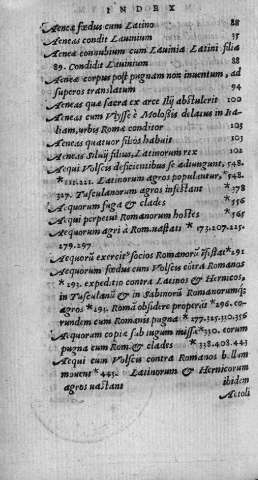 INDEX
Aeneæ fœdus cum Latino 88
Aeneas condit Lauinium 35
Aeneæ connubium cum Lauinia Latini filia
89. Condidit Lauinium 88
Aeneæ corpus post pugnam non inuentum, ad
superos translatum 94
Aeneas quæ sacra ex arce Ilij abstulerit 100
Aeneas cum Vlysse è Molossis delatus in Ita
liam, urbis Romæ conditor 103
Aeneas quatuor filios habuit 103
Aeneas Siluij filius, Latinorum rex 102
Aequi Volscis deficientibus se adiungunt, 548.
*511.221. Latinorum agros populantur, *548.
327. Tusculanorum agros infestant *378
Aequorum fuga & clades *556
Aequi perpetui Romanorum hostes *565
Aequorum agri à Rom. uastati *173.207.225.
279.297
Aequorũ exercitꝰ socios Romanorũ ĩfestat *291
Aequorum fœdus cum Volscis cõtra Romanos
*293. expeditio contra Latinos & Hernicos,
in Tusculanũ & in Sabinorũ Romanorumq;
agros *295. Romã obsidere properãt *296. co-
rundem cum Romanis pugna *277.325.350.356
Aequorum copiæ sub iugum missæ *330. eorum
pugna cum Rom. & clades *338.408.443
Aequi cum Volscis contra Romanos bellum
mouent *445. Latinorum & Hernicorum
agros uastant ibidem
Aetoli